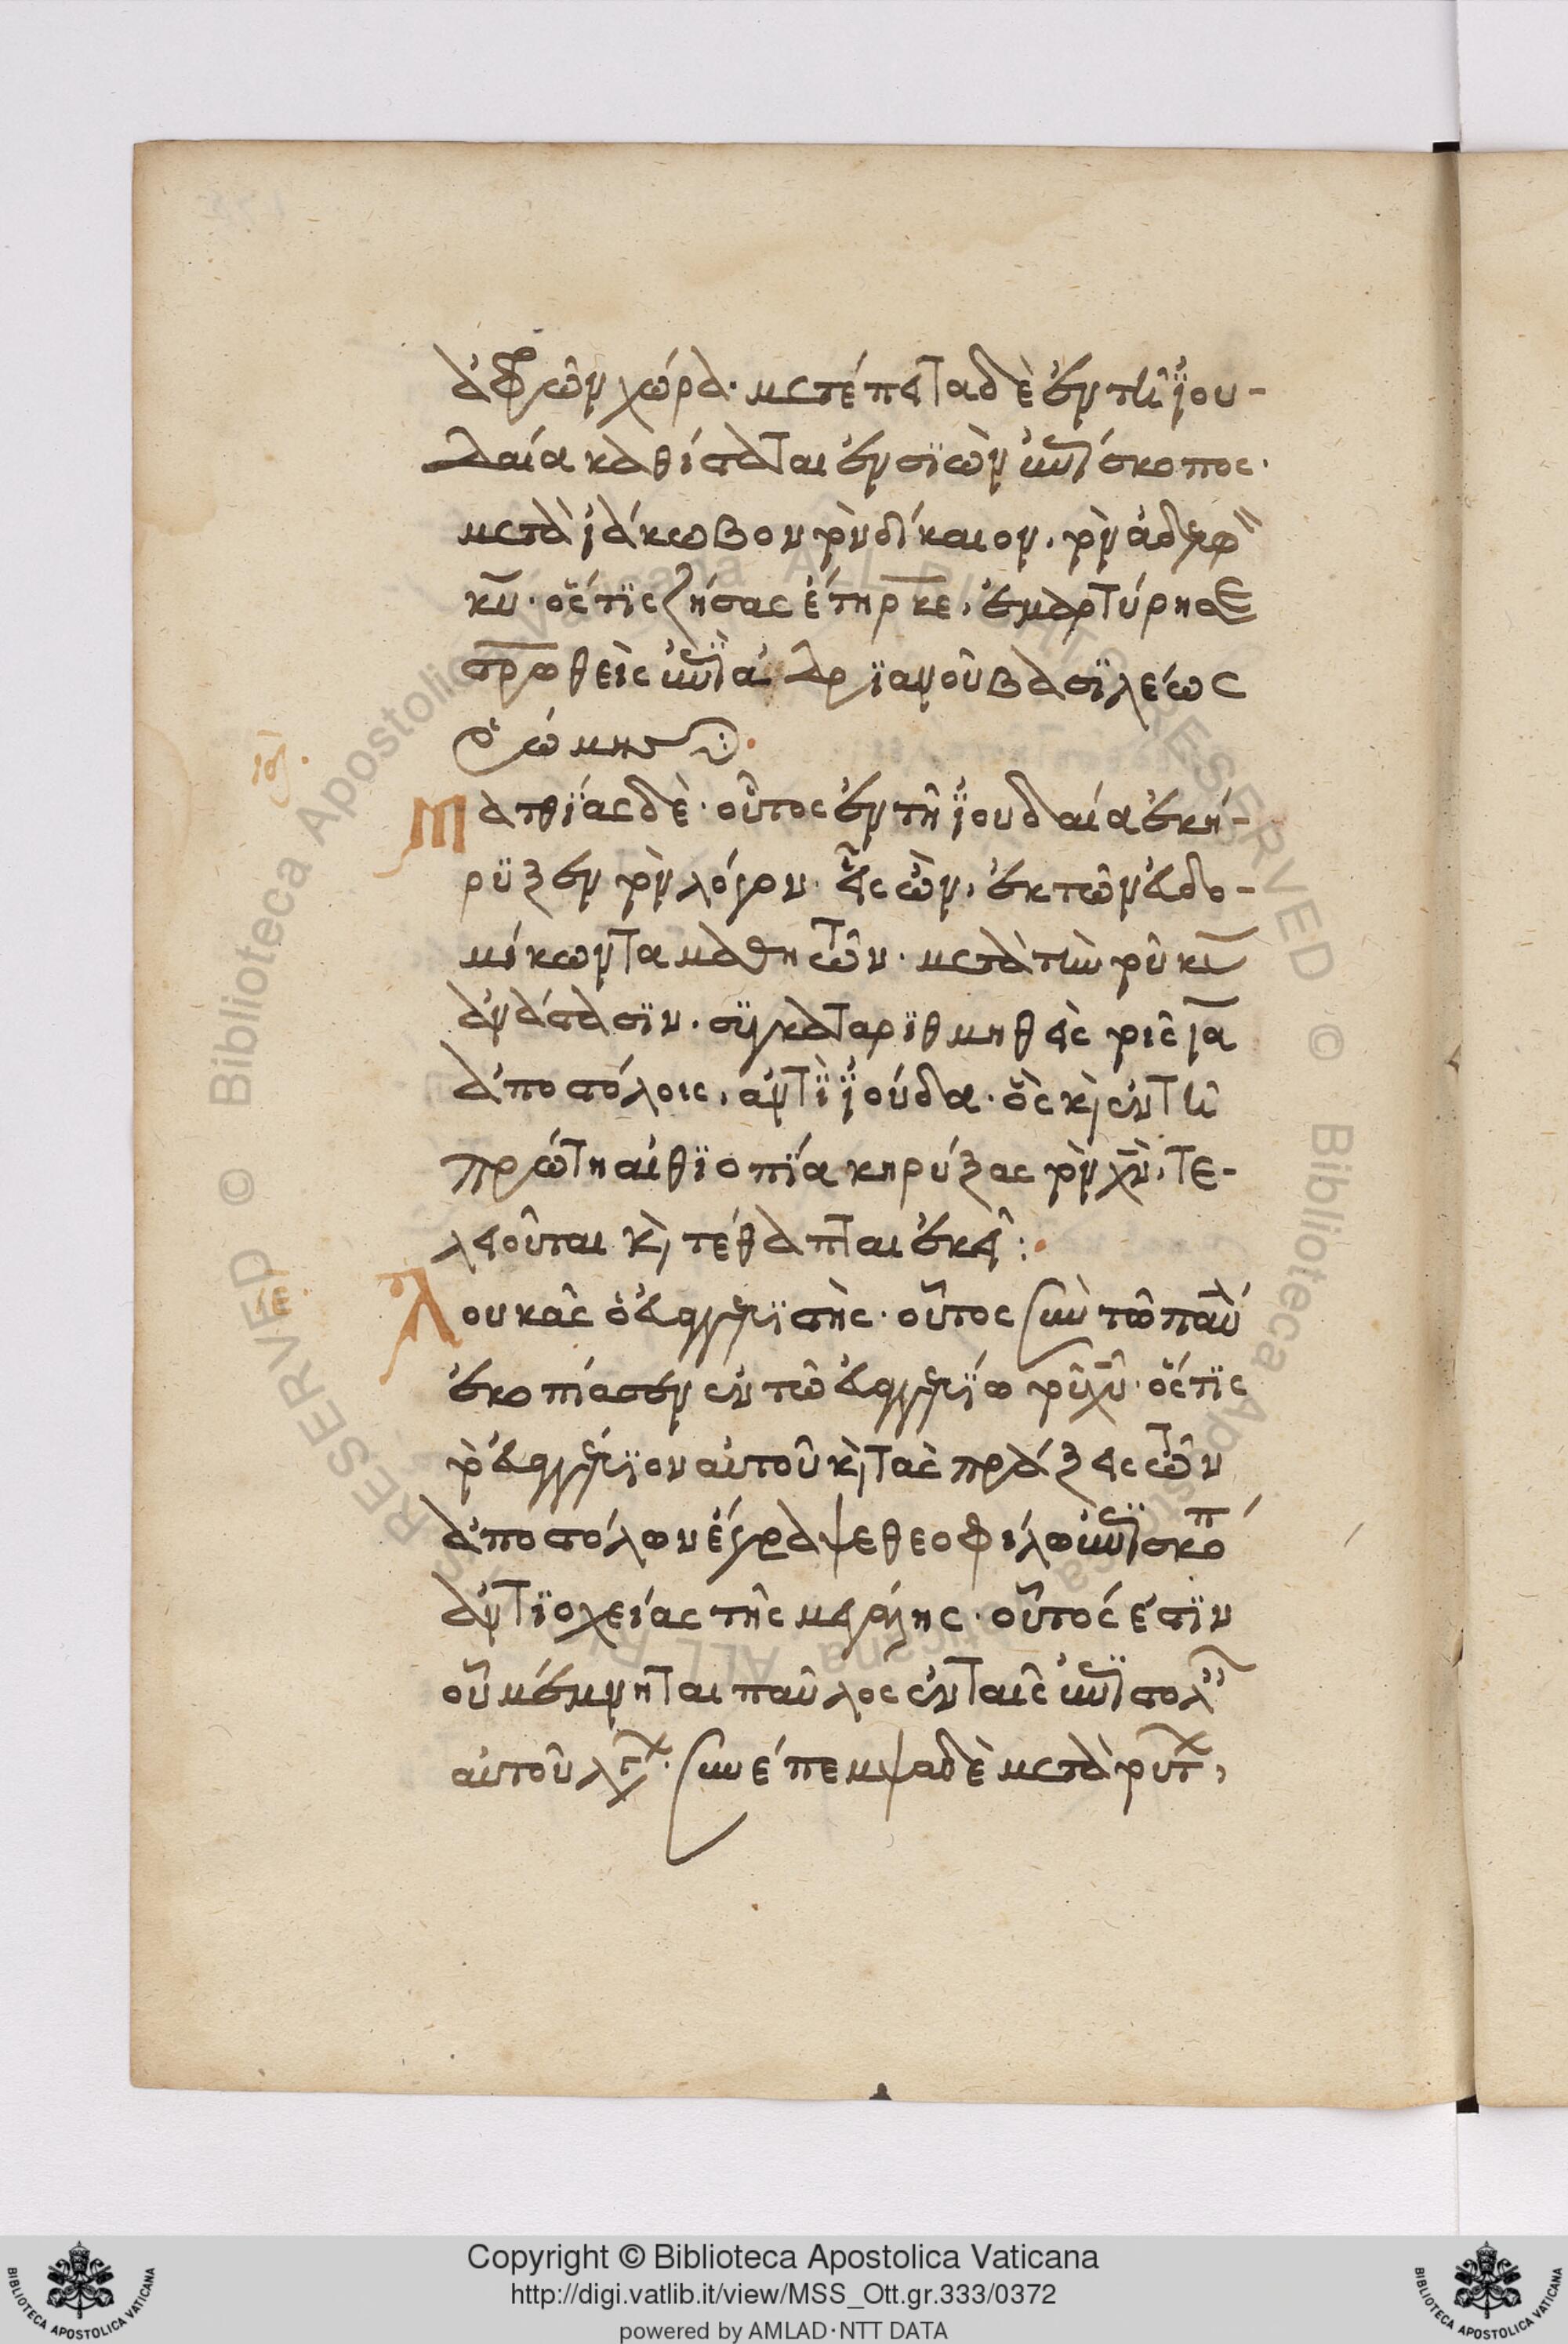 ἄφρων χώρα· μετέπειτα δὲ ἐν τῆ ϊου-
δαία καθίσταται ἐν σϊὼν ἐπίσκοπος·
μετὰ ϊάκωβον τὸν δίκαιον, τὸν ἀδελφ
κυ· ὅστϊς ζήσας ἔτη ρκε, ἐμαρτύρησε
στρωθεὶς ὑπὸ ἀδρϊανοῦ βασϊλέως
ῥώμης:
ιδ.
Ματθϊας δὲ· οὗτος ἐν τῆ ϊουδαία ἐκή-
ρυξεν τὸν λόγον· εἷς ὢν, ἐκ τῶν ἑβδο-
μήκοντα μαθητῶν· μετὰ τὴν τοῦ κυ
ἀνάστασϊν· συγκαταρϊθμηθεὶς τοῖς ια
ἀποστόλοις, ἀντὶ ϊούδα· ὃς κὶ ἐν τῆ
πρώτη αἰθϊοπία κηρύξας τὸν χν, τε-
λειοῦται κὶ τέθαπται ἐκεῖ:
ιε.
Λουκᾶς ὁ εὐαγγελϊστὴς· οὗτος σὺν τῶ παύλ
ἐκοπίασεν ἐν τῶ εὐαγγελίω τοῦ χυ· ὅστϊς
τὸ εὐαγγέλϊον αὐτοῦ κὶ τὰς πράξεις τῶν
ἀποστόλων ἔγραψε θεοφίλω ἐπισκό
ἀντϊοχείας τῆς μεγάλης· οὗτός ἐστϊν
οὗ μέμνηται παῦλος ἐν ταῖς ἐπιστολ
αὐτοῦ λέγ· συνέπεμψα δὲ μετὰ τουτ,
Copyright © Biblioteca Apostolica Vaticana
http://digi.vatlib.it/view/MSS_Ott.gr.333/0372
powered by AMLAD·NTT DATA